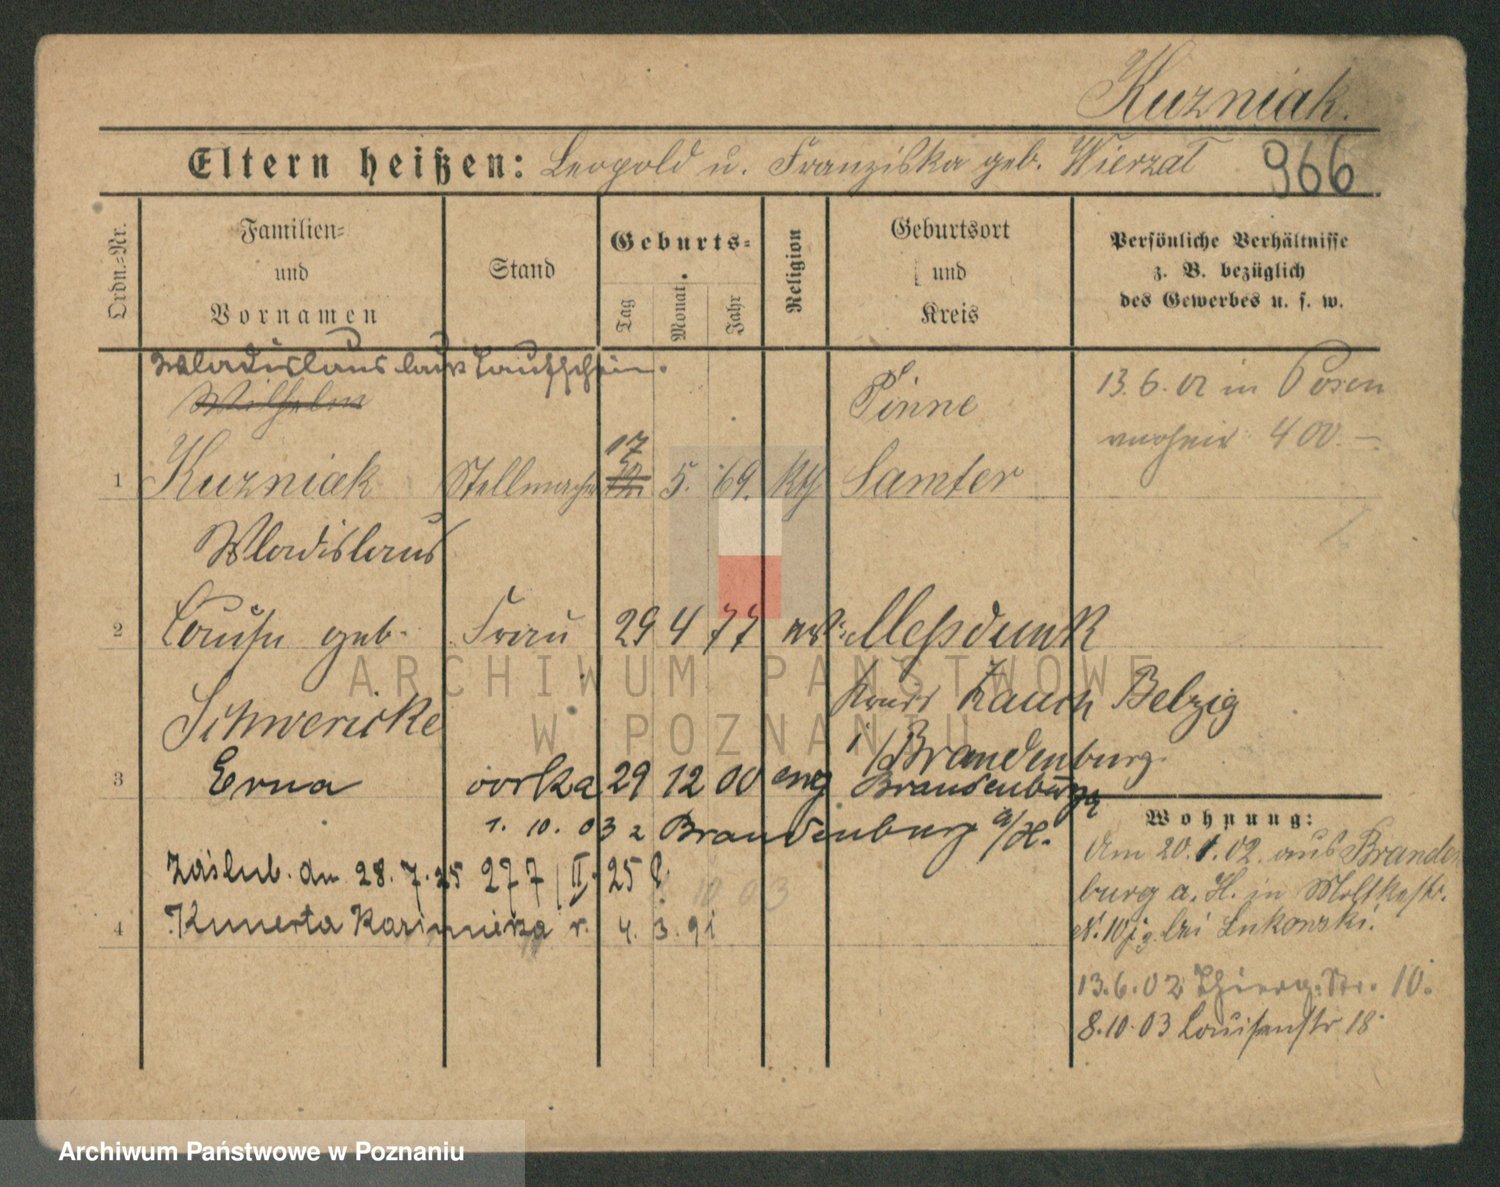 Kuzniak.
Eltern heißen: Leopold u. Franziska geb. Wierzat 966
Ordn.-Nr.
Familien- und Vornamen
Stand
Geburts-
Tag
Monat
Jahr
Religion
Geburtsort und Kreis
Persönliche Verhältnisse z. B. bezüglich des Gewerbes u. s. w.
Wladislaus laut Taufschein.
Wilhelm
Pinne
13.6.02 in Posen
400.—
17
1 Kuzniak Stellmacher 12. 5. 69. kth Samter
Wladislaus
2 Louise geb. Frau 29 4 77 Meßdunk
Schwericke
Kreis Zauch Belzig
i/Brandenburg
3 Erna córka 29 12 00 ewg Brandenburg
1. 10. 03 z Brandenburg a/H.
Zaślub. dn 28. 7. 25 277/II. 25 P.
10 03
4 Kunerta Kazimierza r. 4. 3. 91
Wohnung:
Am 20.1.02. aus Branden
burg a. H. in Moltkestr.
N. 10 bei Lukowski.
13.6.02 Thierg. Str. 10.
8.10.03 Louisenstr 18
ARCHIWUM PAŃSTWOWE
W POZNANIU
Archiwum Państwowe w Poznaniu